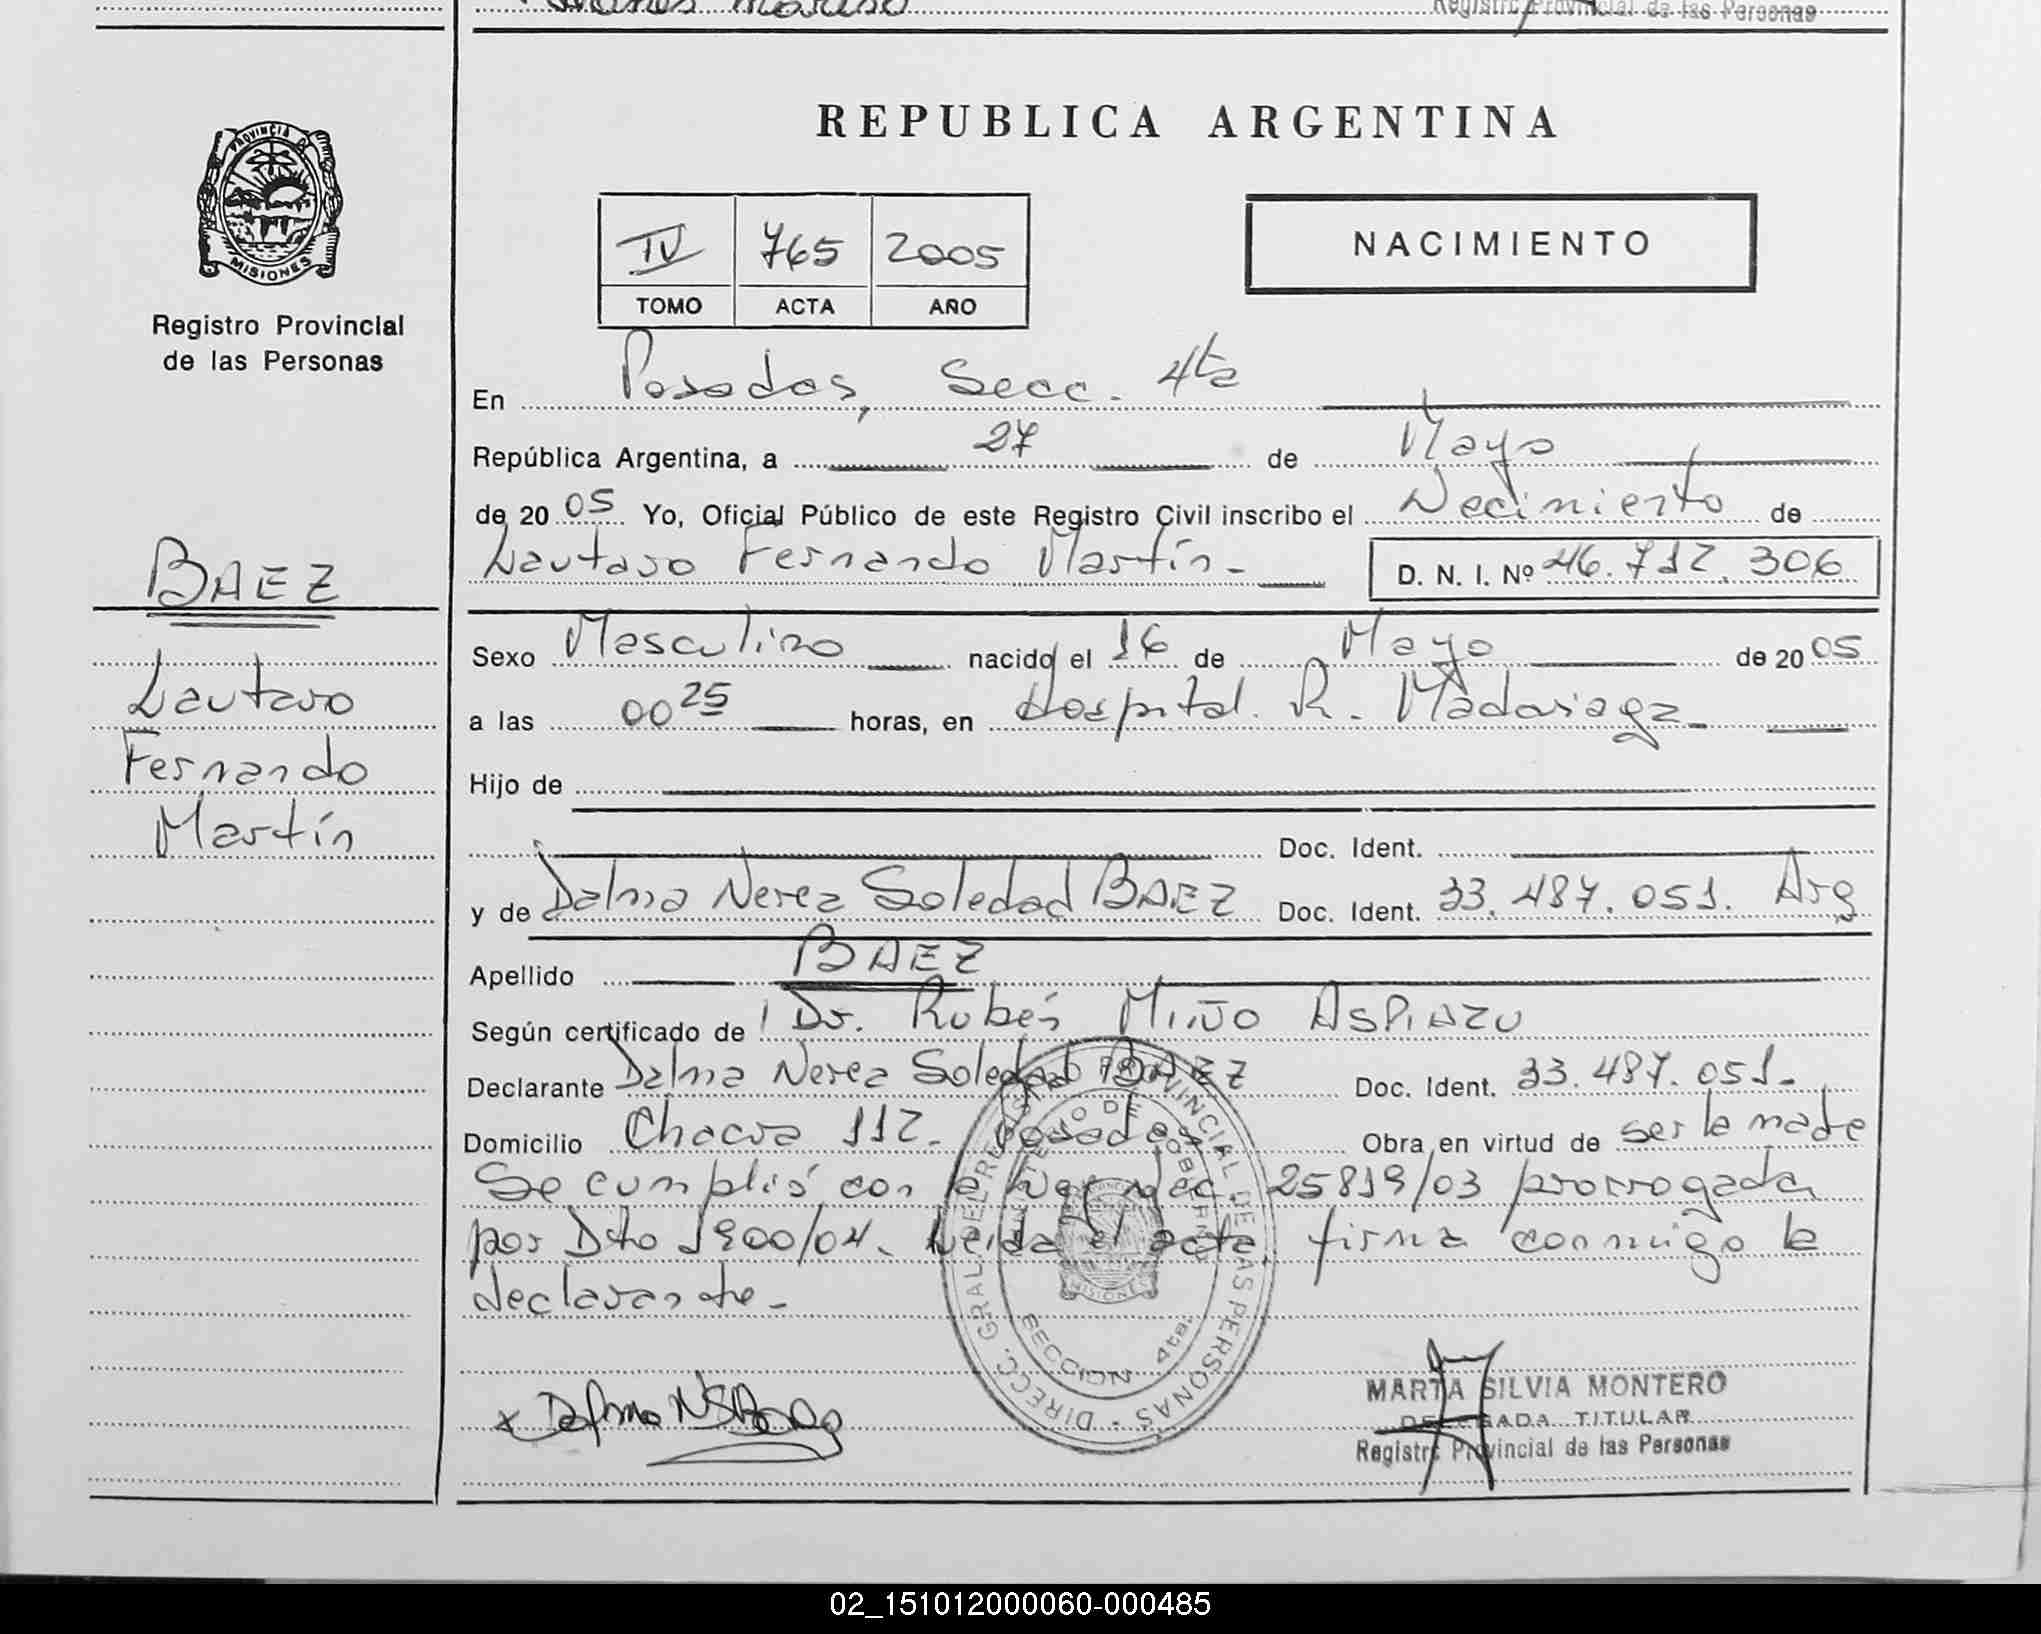 Registro Provincial de las Personas
REPUBLICA ARGENTINA
PROVINCIA DE
MISIONES
Registro Provincial
de las Personas
IV 765 2005
TOMO ACTA AÑO
NACIMIENTO
En Posadas, Secc. 4ta
República Argentina, a 27 de Mayo
de 20 05 Yo, Oficial Público de este Registro Civil inscribo el Nacimiento de
Lautaro Fernando Martín - D. N. I. Nº 46.712.306
BAEZ
Lautaro
Fernando
Martín
Sexo Masculino nacido el 16 de Mayo de 20 05
a las 00 25 horas, en Hospital. R. Madariaga -
Hijo de
Doc. Ident.
y de Dalma Nerea Soledad BAEZ Doc. Ident. 33.487.051. Arg
Apellido BAEZ
Según certificado de Dr. Rubén MIÑO ASPIAZU
Declarante Dalma Nerea Soledad BAEZ Doc. Ident. 33.487.051.-
Domicilio Chacra 112. Posadas Obra en virtud de ser la madre
Se cumplió con la Ley Nac. 25819/03 prorrogada
por Dto 1900/04. Leida el acta, firma conmigo la
declarante -
DIRECC. GRAL. DEL REGISTRO PROVINCIAL DE LAS PERSONAS
MINISTERIO DE GOBIERNO
MISIONES
SECCION 4ta.
x Dalma N S Baez
MARTA SILVIA MONTERO
DELEGADA TITULAR
Registro Provincial de las Personas
02_151012000060-000485